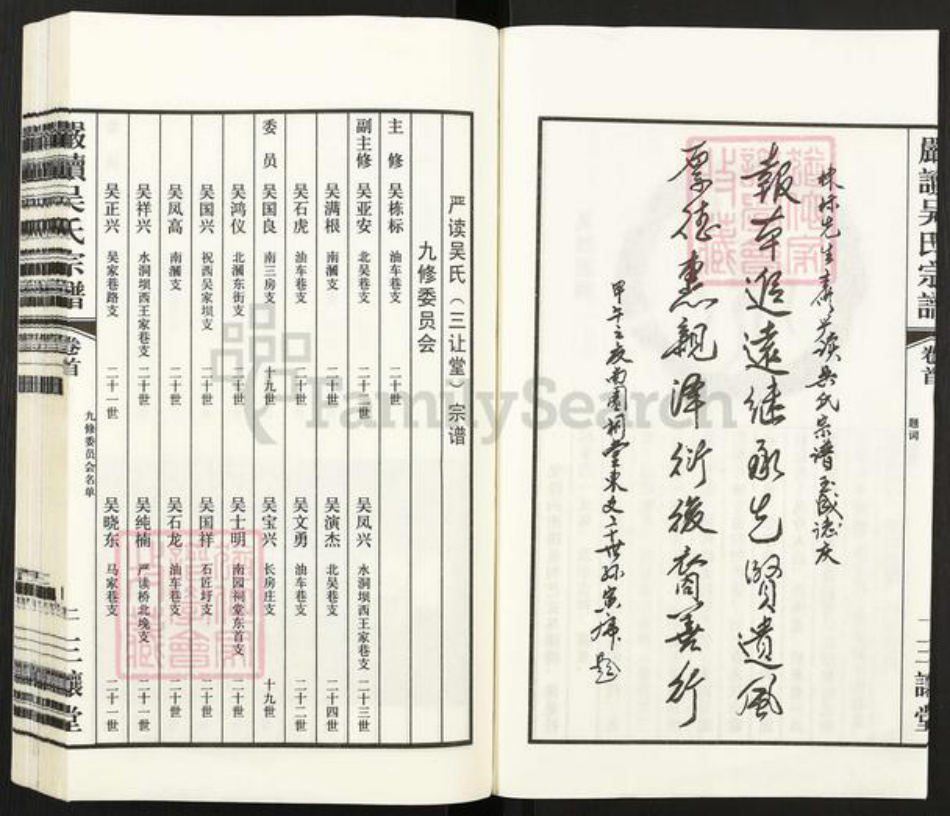 嚴讀吳氏宗譜
卷首
題词
三讓堂
棟标先生斋严读吳氏宗谱玉成志庆
報本追遠继承先贤遺風
厚德惠親泽衍後裔善行
甲午之夏南園祠堂東支二十世孙
题
严读吴氏（三让堂）宗谱
九修委员会
主修 吴栋标 油车巷支 二十世
副主修 吴亚安 北吴巷支 二十二世 吴凤兴 水洞坝西王家巷支 二十三世
吴满根 南漍支 二十世 吴演杰 北吴巷支 二十四世
吴石虎 油车巷支 二十世 吴文勇 油车巷支 二十二世
委员 吴国良 南三房支 十九世 吴宝兴 长房庄支 十九世
吴鸿仪 北漍东街支 二十世 吴士明 南园祠堂东首支 二十世
吴国兴 祝西吴家坝支 二十世 吴国祥 石匠圩支 二十世
吴凤高 南漍支 二十世 吴石龙 油车巷支 二十世
吴祥兴 水洞坝西王家巷支 二十世 吴纯楠 严读桥北堍支 二十一世
吴正兴 吴家巷路支 二十一世 吴晓东 马家巷支 二十一世
九修委员会名单
嚴讀吳氏宗譜
卷首
二
三讓堂
FamilySearch